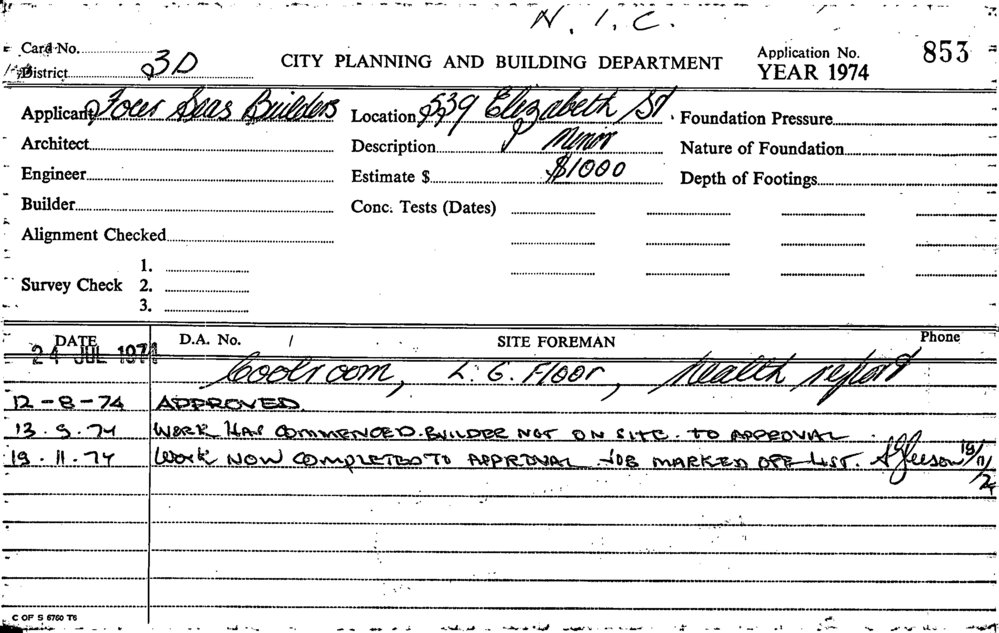 N.I.C.
Card No.
District 3D
CITY PLANNING AND BUILDING DEPARTMENT
Application No. 853
YEAR 1974
Applicant Four Seas Builders Location 539 Elizabeth St. Foundation Pressure
Architect Description Minor Nature of Foundation
Engineer Estimate $ $1000 Depth of Footings
Builder Conc. Tests (Dates)
Alignment Checked
1.
Survey Check 2.
3.
DATE D.A. No. / SITE FOREMAN Phone
24 JUL 1974
Coolroom, L.G. Floor, Health report
12-8-74 APPROVED.
13.9.74 WORK HAS COMMENCED. BUILDER NOT ON SITE. TO APPROVAL
19.11.74 WORK NOW COMPLETED TO APPROVAL JOB MARKED OFF LIST. 19/11/74
C OF S 6760 T6